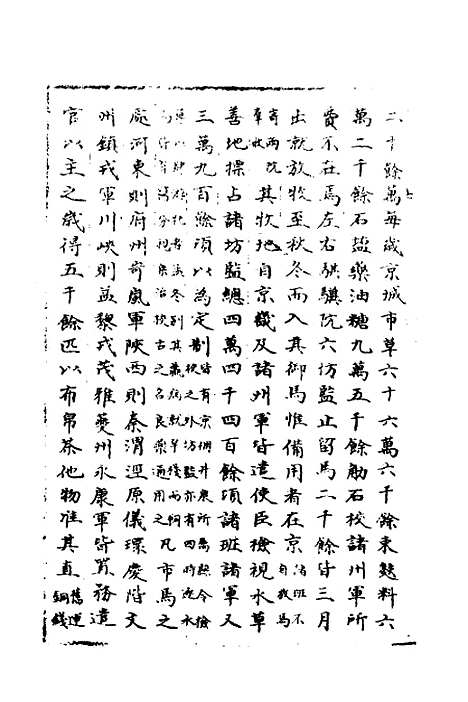 二十餘萬每歲京城市草六十六萬六千餘束麩料六
萬二千餘石鹽藥油糖九萬五千餘觔石校諸州軍所
費不在焉左右騏驥院六坊監止留馬二千餘皆三月
出就放牧至秋冬而入其御馬惟備用者在京諸班不自牧馬
寄兩院其牧地自京畿及諸州軍皆遣使臣檢視水草
善地標占諸坊監總四萬四千四百餘頃諸班諸軍又
三萬九百餘頃以為定制皆有京棚井泉所馬檢
之凡市馬之
處河東則府州岢嵐軍陝西則秦渭涇原儀環慶階文
州鎮戎軍川峽則益黎戎茂雅夔州永康軍皆置務遣
官以主之歲得五千餘匹以布帛茶他物准其直舊運銅錢